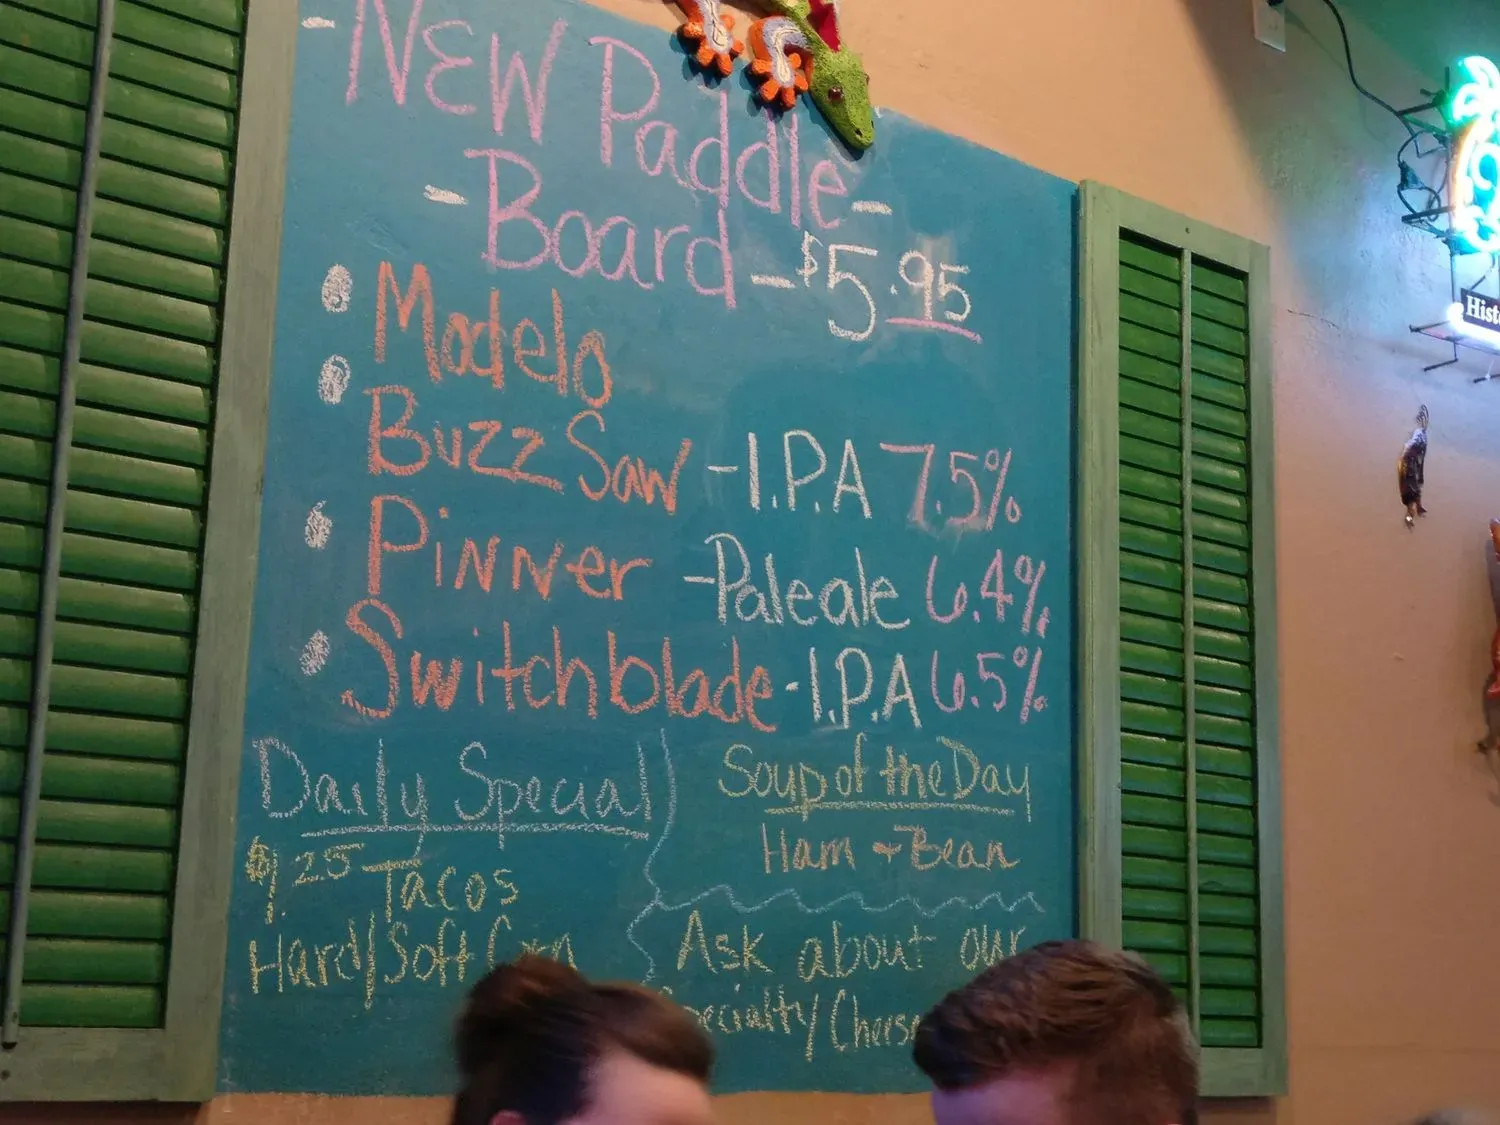 - NEW Paddle -
- Board - $5.95
Modelo
Buzz Saw - I.P.A 7.5%
Pinner - Paleale 6.4%
Switchblade - I.P.A 6.5%
Daily Special
$1.25 Tacos
Hard/Soft Corn
Soup of the Day
Ham + Bean
Ask about our
Specialty Cheese